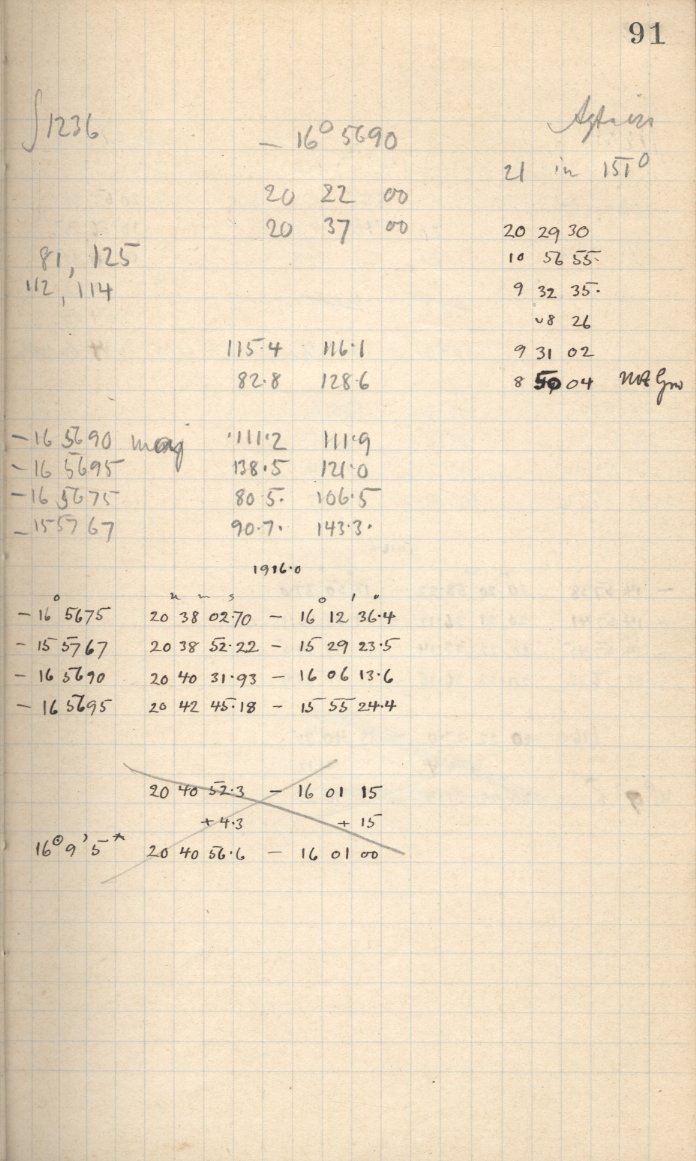 91
∫1236
- 16° 5690
20 22 00
20 37 00
81, 125
112, 114
115.4 116.1
82.8 128.6
21 in 151°
20 29 30
10 56 55.
9 32 35.
08 26
9 31 02
8 50 04
- 16 5690 maj 111.2 111.9
- 16 5695 138.5 121.0
- 16 5675 80.5. 106.5
- 15 5767 90.7. 143.3.
1916.0
° h m s ° ' "
- 16 5675 20 38 02.70 - 16 12 36.4
- 15 5767 20 38 52.22 - 15 29 23.5
- 16 5690 20 40 31.93 - 16 06 13.6
- 16 5695 20 42 45.18 - 15 55 24.4
20 40 52.3 - 16 01 15
+ 4.3 + 15
16° 9' 5* 20 40 56.6 - 16 01 00